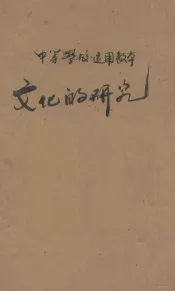 中等學校適用教本
文化的研究